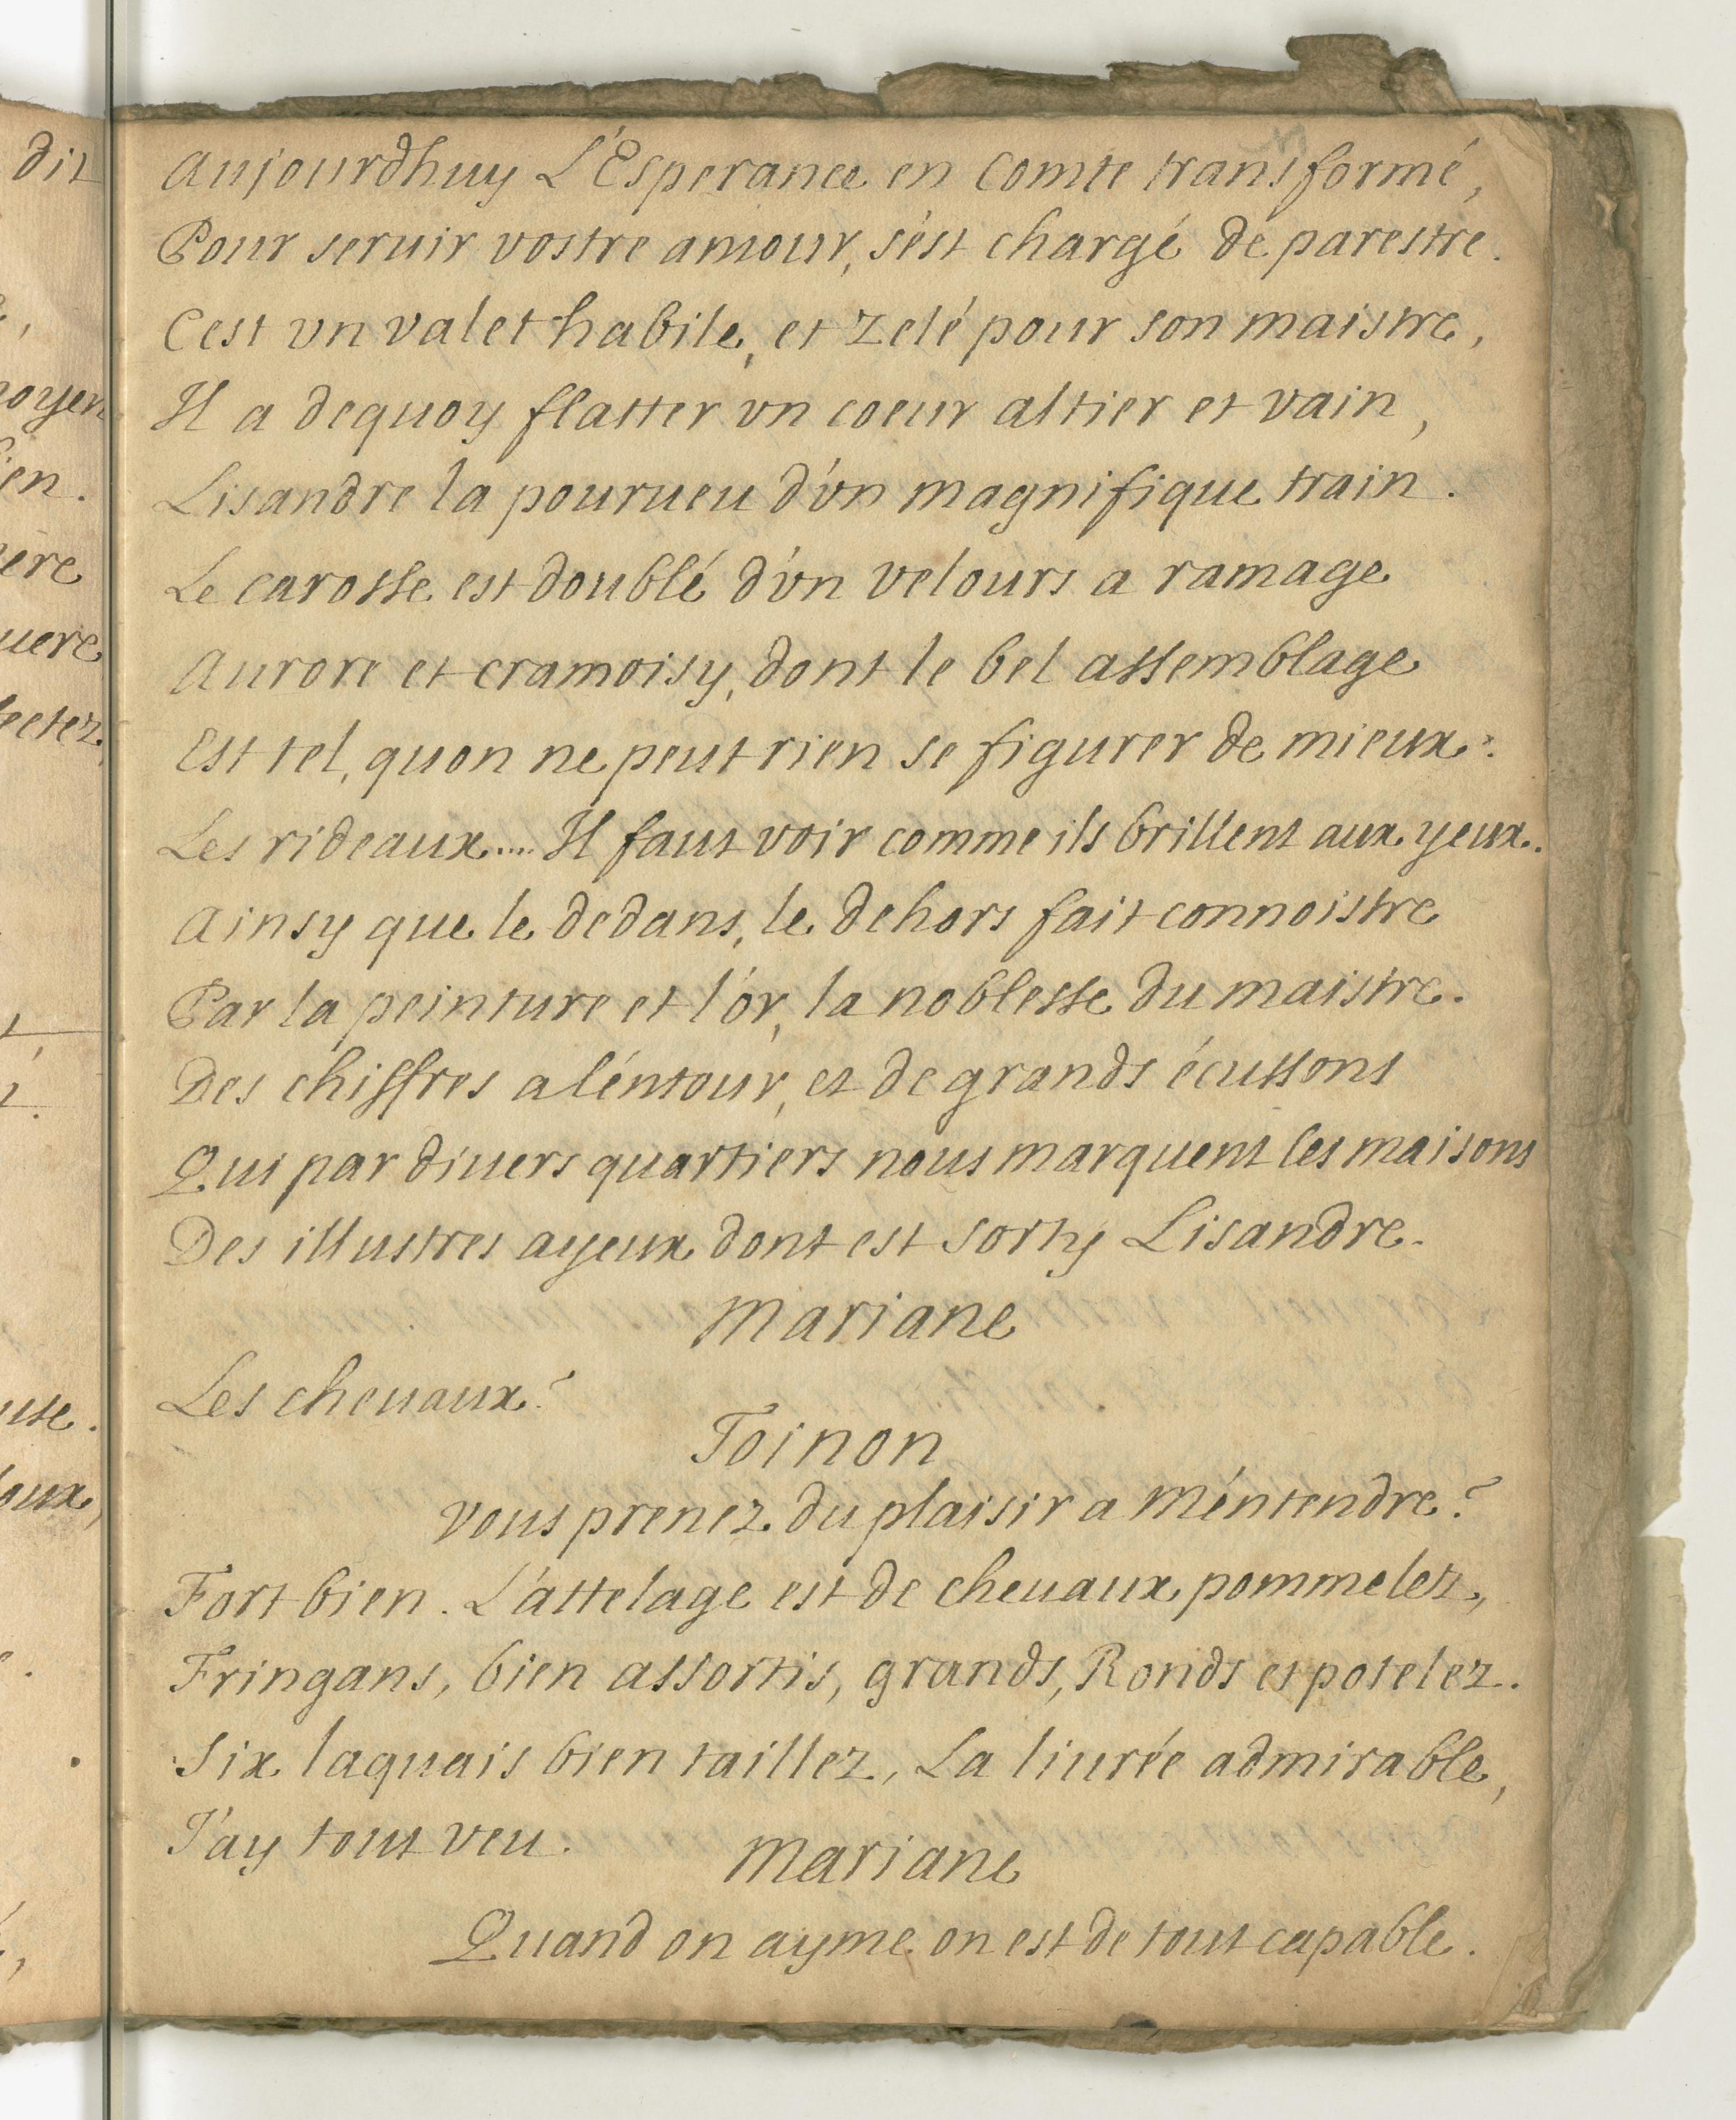 Aujourdhuy L'Esperance en Comte transformé,
Pour seruir vostre amour, s'est chargé de parestre.
C'est vn valet habile, et zelé pour son maistre,
Il a dequoy flatter vn coeur altier et vain,
Lisandre la pourueu d'vn magnifique train.
Le carosse est doublé d'vn velours a ramage
Aurore et cramoisy, dont le bel assemblage
Est tel, quon ne peut rien se figurer de mieux.
Les rideaux.... Il faut voir comme ils brillent aux yeux.
Ainsy que le dedans, le dehors fait connoistre
Par la peinture et l'or, la noblesse du maistre.
Des chiffres a l'entour, et de grands écussons
Qui par diuers quartiers nous marquent les maisons
Des illustres ayeux dont est sorty Lisandre.
Mariane
Les cheuaux?
Toinon
vous prenez du plaisir a m'entendre?
Fort bien. L'attelage est de cheuaux pommelez,
Fringans, bien assortis, grands, Ronds et potelez.
Six laquais bien taillez, La liurée admirable,
J'ay tout veu.
Mariane
Quand on ayme on est de tout capable.